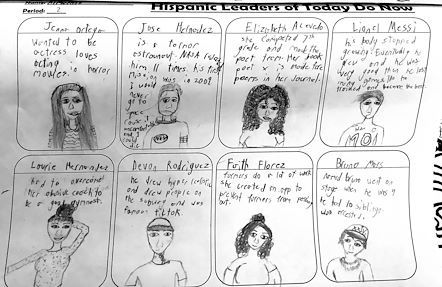 Hispanic Leaders of Today Do Now
Period: 2
Jenna ortega
wanted to be
actress loves
acting in horror
movies.
Jose Hernadez
is a former
astronaut. NASA
him 11 times. his first
mission was in 2009
I would
never
go to
space
cause
and
Elizabeth Acevedo
she completed 7th
grade and read the
poet from her book
poet x is made the
poems in her journal.
Lionel Messi
his body stopped
growing! Eventually he
grew and he was
very good then he
trained and became the best.
Laurie Hernandez
had to overcome
her abusive coach to
be a good gymnast.
Devon Rodriguez
he drew hyper
and drew people on
the subway and was
famous tiktok.
Faith Florez
farmers do a lot of work
she created an app to
prevent farmers from
out.
Bruno Mars
named bruno went on
stage when he was 4
he had 10 siblings
who